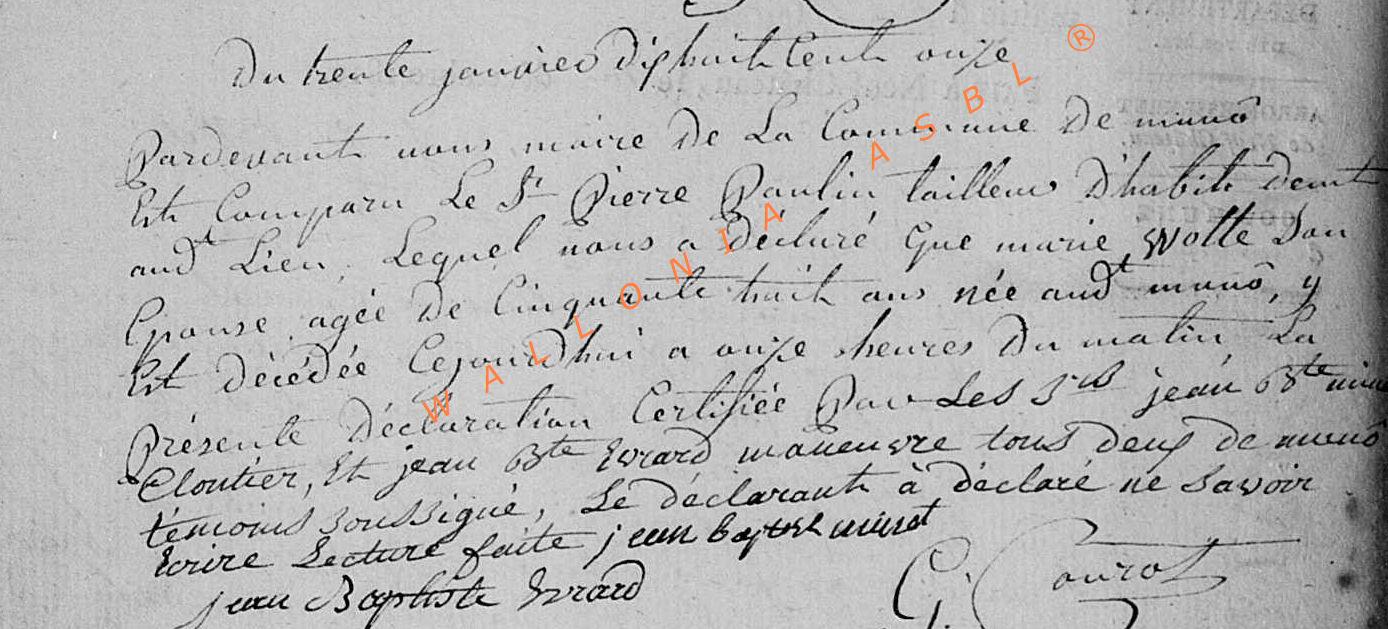 Du trente janvier Dixhuit Cent onze
Pardevant nous maire de La Commune De muno
Est Comparu Le Sr Pierre Paulin tailleur D'habit demt
audt Lieu, Lequel nous a déclaré que marie Wotte Son
Epouse agée De Cinquante huit ans née audt muno, y
Est décédée Cejourdhui a onze heures Du matin La
présente Déclaration Certifiée Par Les Srs jean Bte
Cloutier, Et jean Bte Evrard maneuvre tous deux de muno
témoins soussigné, Le déclarant à déclaré ne Savoir
Ecrire Lecture faite jean baptist minot
jean Baptiste Evrard
G. Courot
WALLONIA ASBL ®